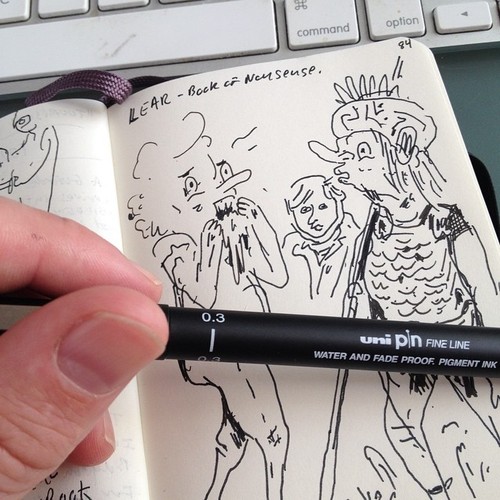 command
option
84
LEAR - Book of Nonsense.
0.3
0.3
uni pin FINE LINE
WATER AND FADE PROOF, PIGMENT INK